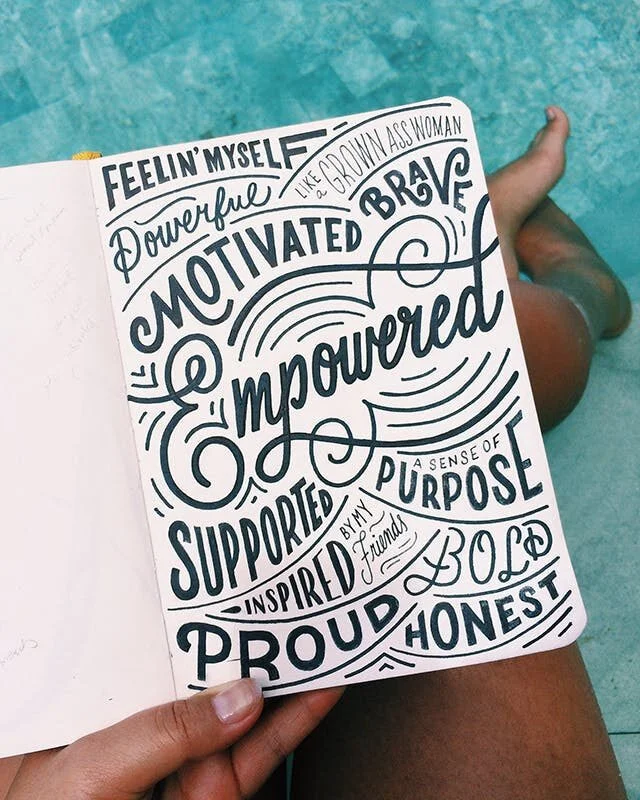 FEELIN' MYSELF
LIKE a GROWN ASS WOMAN
Powerful
BRAVE
MOTIVATED
Empowered
A SENSE OF
PURPOSE
SUPPORTED
INSPIRED BY MY Friends
BOLD
PROUD
HONEST